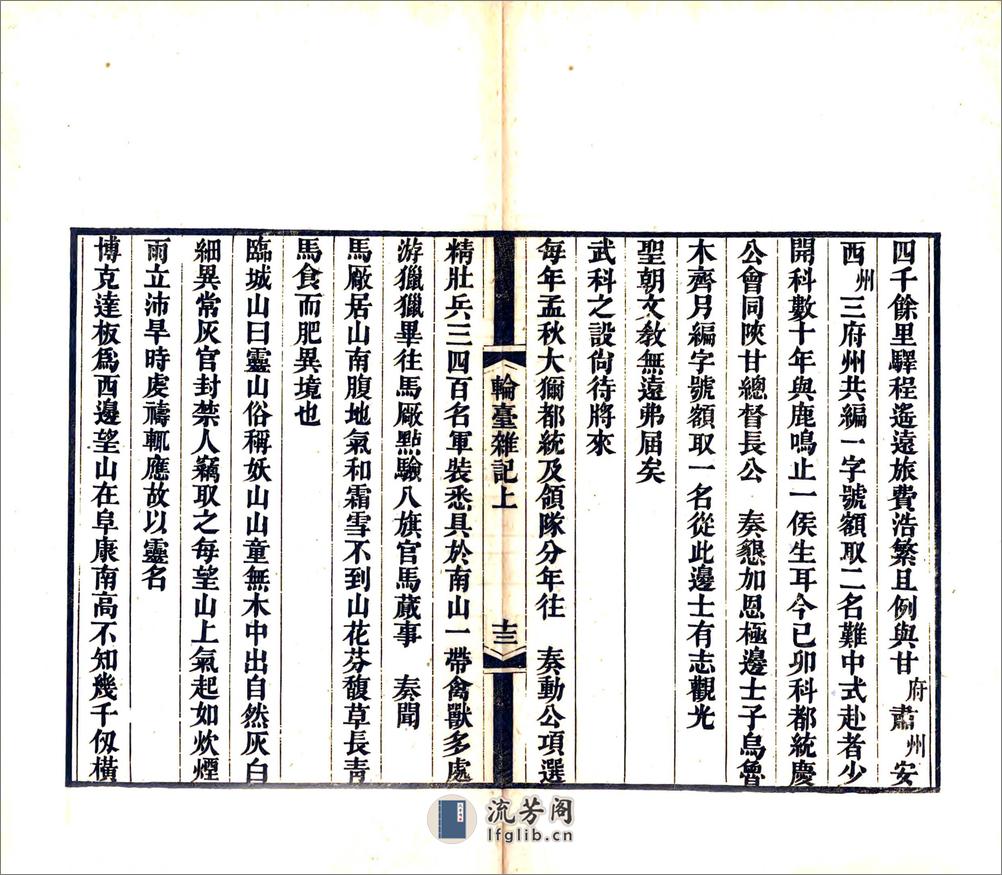 四千餘里驛程遙遠旅費浩繁且例與甘府肅州安
西州三府州共編一字號額取二名難中式赴者少
開科數十年與鹿鳴止一侯生耳今已卯科都統慶
公會同陝甘總督長公　奏懇加恩極邊士子烏魯
木齊另編字號額取一名從此邊士有志觀光
聖朝文敎無遠弗屆矣
武科之設尙待將來
每年孟秋大獮都統及領隊分年往　奏動公項選
輪臺雜記上　十三
精壯兵三四百名軍裝悉具於南山一帶禽獸多處
游獵獵畢往馬厰點驗八旗官馬蕆事　奏聞
馬厰居山南腹地氣和霜雪不到山花芬馥草長靑
馬食而肥異境也
臨城山曰靈山俗稱妖山山童無木中出自然灰白
細異常灰官封禁人竊取之每望山上氣起如炊煙
雨立沛旱時虔禱輒應故以靈名
博克達板爲西邊望山在阜康南高不知幾千仭橫
流芳阁
lfglib.cn